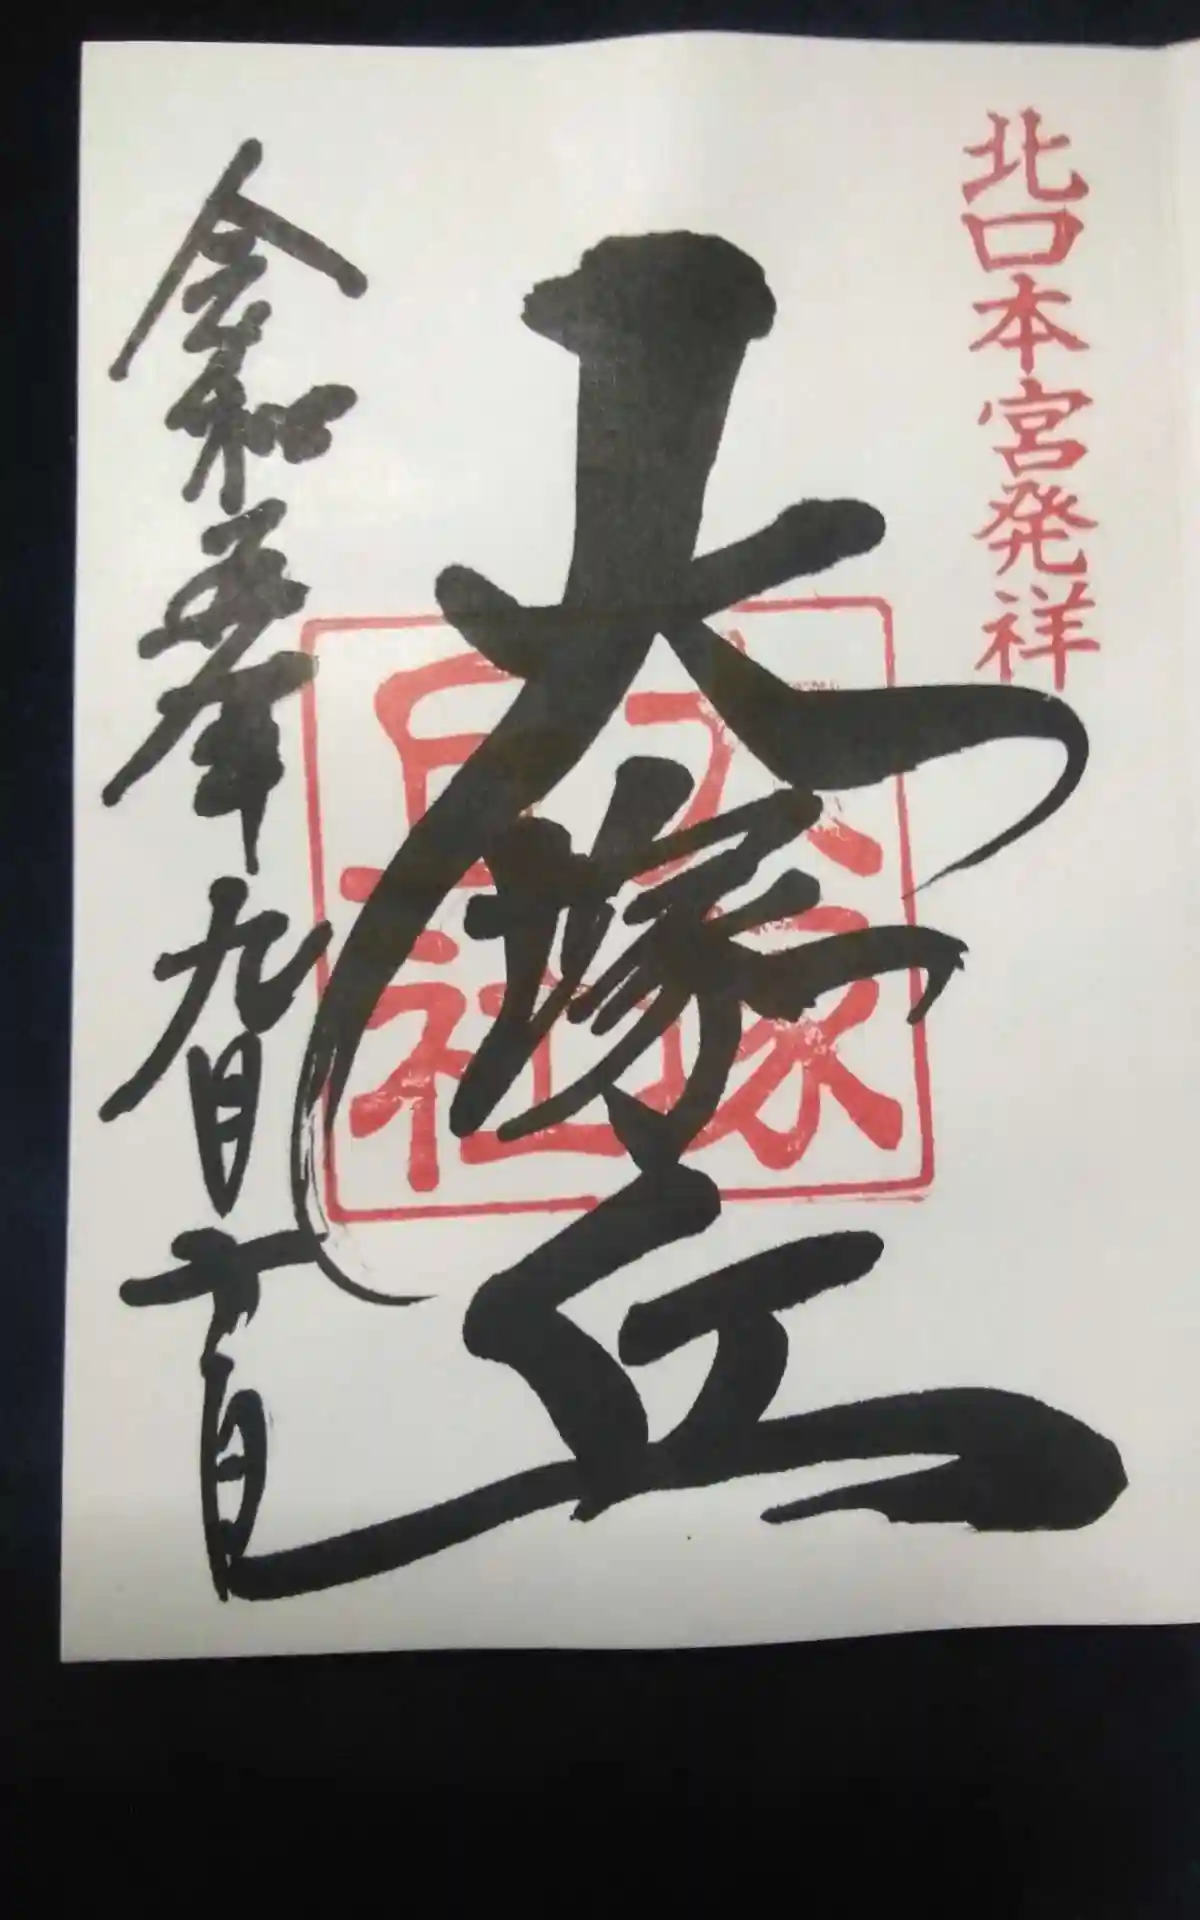 北口本宮発祥
大塚丘
大塚丘社
令和五年九月十一日